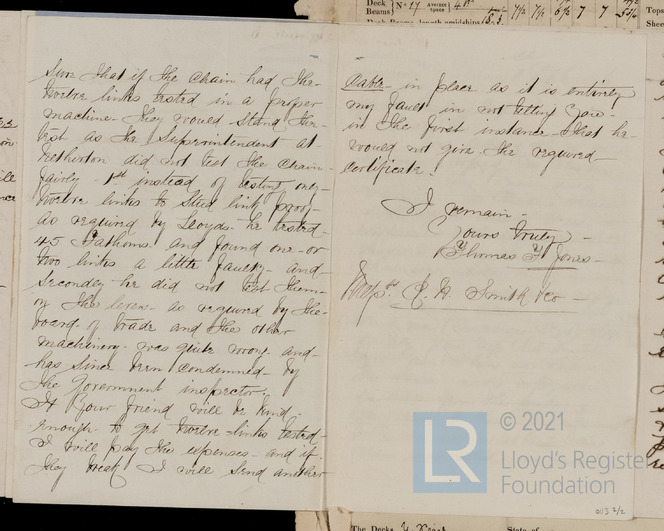 Deck Beams
Nº 17 AVERAGE SPACE
7½ 7½ 6½ 7 7
Deck Beams, length amidships
Tops
Sure that if the chain had the
twelve links tested in a proper
machine they would stand the
test as the Superintendent at
Netherton did not test the chain
fairly 1st instead of testing only
twelve links to Stud link proof
as required by Lloyds he tested
45 Fathoms and found one or
two links a little faulty and
Secondly he did not test them
on the lever as required by the
board of trade and the other
machinery was quite wrong and
has since been condemned by
the Government inspector.
If your friend will be kind
enough to get twelve links tested
I will pay the expenses and if
they break I will send another
Cable in place as it is entirely
my fault in not telling you
in the first instance that he
would not give the required
certificate.
I remain
Yours truly
Thomas Jones
Smith & Co
© 2021
LR
Lloyd's Register
Foundation
0113 2/2
The Decks
State of